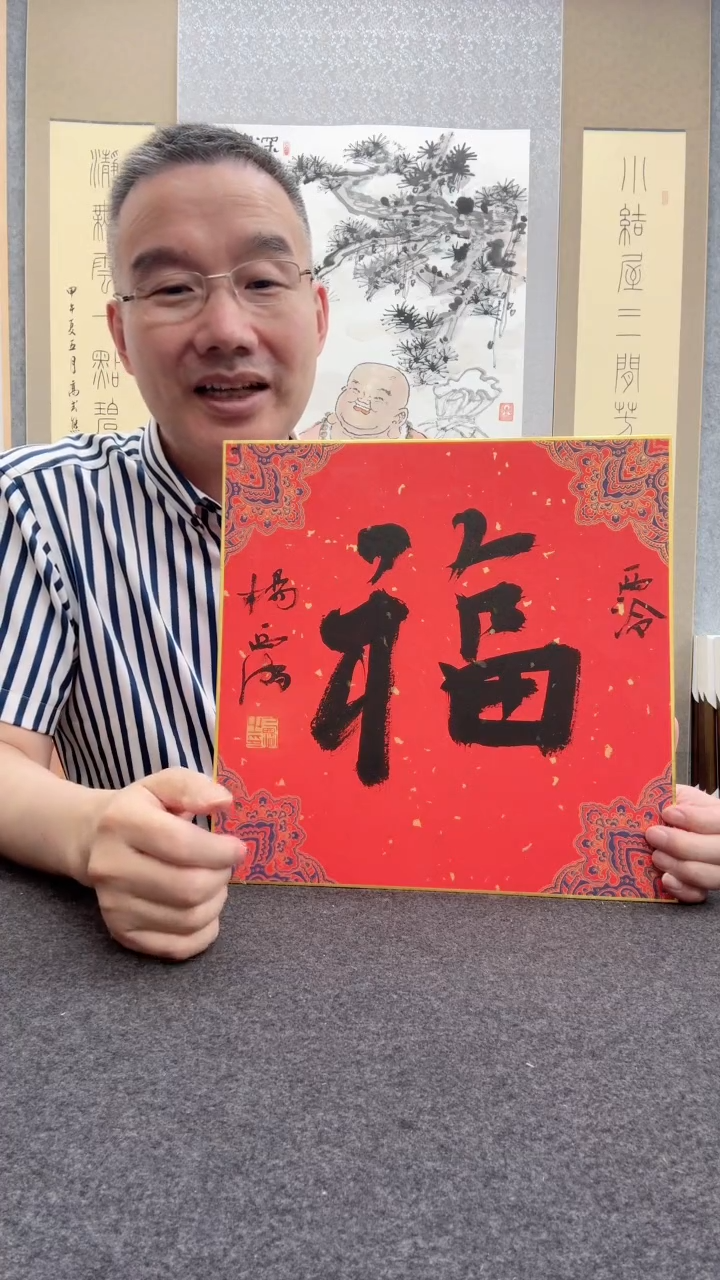 小結屋三間芳
深
雲一點碧
甲午夏五月高式熊
西泠
福
楊西湖